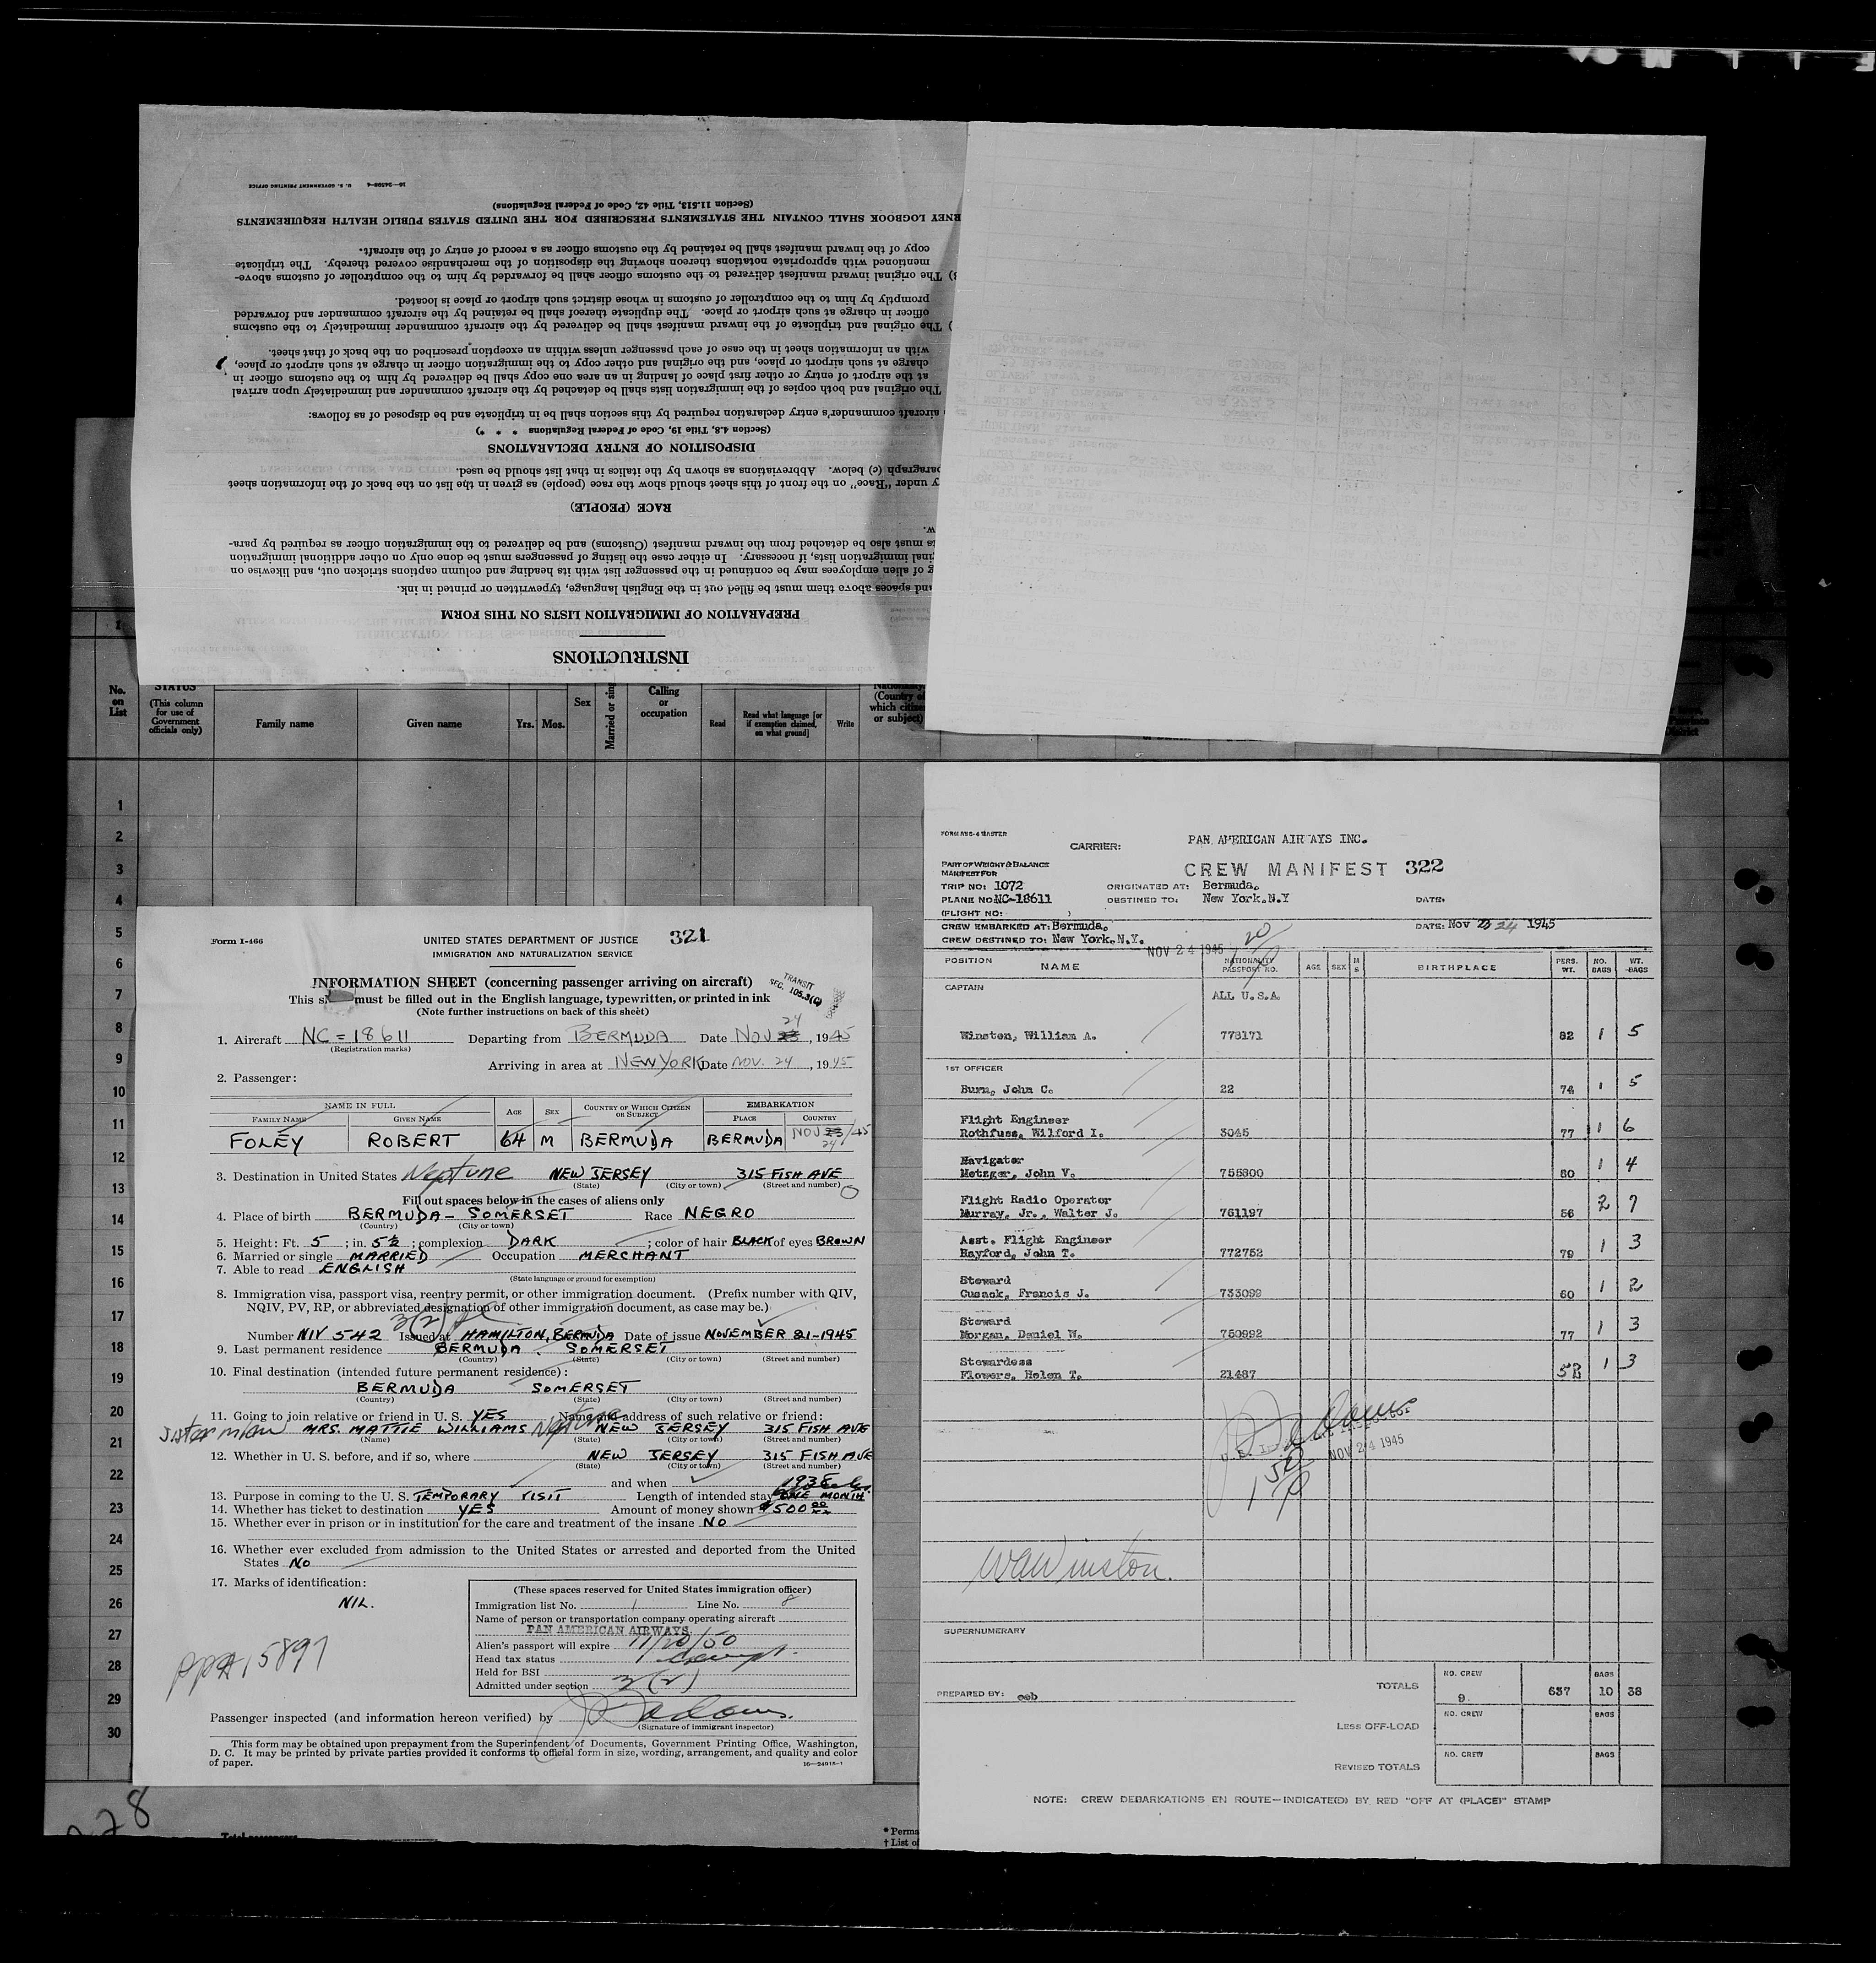 INSTRUCTIONS
PREPARATION OF IMMIGRATION LISTS ON THIS FORM
and spaces above them must be filled out in the English language, typewritten or printed in ink.
g of alien employees may be continued in the passenger list with its heading and column captions stricken out, and likewise on
ginal immigration lists, if necessary. In either case the listing of passengers must be done only on other additional immigration
ts must also be detached from the inward manifest (Customs) and be delivered to the immigration officer as required by para-
w.
RACE (PEOPLE)
y under "Race" on the front of this sheet should show the race (people) as given in the list on the back of the information sheet
paragraph (c) below. Abbreviations as shown by the italics in that list should be used.
DISPOSITION OF ENTRY DECLARATIONS
(Section 4.8, Title 19, Code of Federal Regulations * * *)
aircraft commander's entry declaration required by this section shall be in triplicate and be disposed of as follows:
The original and both copies of the immigration lists shall be detached by the aircraft commander and immediately upon arrival
at the airport of entry or other first place of landing in an area one copy shall be delivered by him to the customs officer in
charge at such airport or place, and the original and other copy to the immigration officer in charge at such airport or place,
with an information sheet in the case of each passenger unless within an exception prescribed on the back of that sheet.
) The original and triplicate of the inward manifest shall be delivered by the aircraft commander immediately to the customs
officer in charge at such airport or place. The duplicate thereof shall be retained by the aircraft commander and forwarded
promptly by him to the comptroller of customs in whose district such airport or place is located.
) The original inward manifest delivered to the customs officer shall be forwarded by him to the comptroller of customs above-
mentioned with appropriate notations thereon showing the disposition of the merchandise covered thereby. The triplicate
copy of the inward manifest shall be retained by the customs officer as a record of entry of the aircraft.
RNEY LOGBOOK SHALL CONTAIN THE STATEMENTS PRESCRIBED FOR THE UNITED STATES PUBLIC HEALTH REQUIREMENTS
(Section 11.513, Title 42, Code of Federal Regulations)
U. S. GOVERNMENT PRINTING OFFICE
No. on List
STATUS (This column for use of Government officials only)
Family name Given name Yrs. Mos. Sex Married or sing
Calling or occupation
Read Read what language [or if exemption claimed, on what ground] Write
(Country of which citizen or subject)
1
2
3
4
5
6
7
8
9
10
11
12
13
14
15
16
17
18
19
20
21
22
23
24
25
26
27
28
29
30
Form I-466
UNITED STATES DEPARTMENT OF JUSTICE 321
IMMIGRATION AND NATURALIZATION SERVICE
INFORMATION SHEET (concerning passenger arriving on aircraft)
TRANSIT SEC. 105.3(C)
This must be filled out in the English language, typewritten, or printed in ink
(Note further instructions on back of this sheet)
1. Aircraft NC=18611 Departing from BERMUDA Date NOV 23 24, 1945
(Registration marks)
Arriving in area at NEW YORK Date NOV. 24, 1945
2. Passenger:
NAME IN FULL AGE SEX COUNTRY OF WHICH CITIZEN OR SUBJECT EMBARKATION
FAMILY NAME GIVEN NAME PLACE COUNTRY
FOLEY ROBERT 64 M BERMUDA BERMUDA NOV 23/45
24
3. Destination in United States Neptune NEW JERSEY 315 FISH AVE
(State) (City or town) (Street and number)
Fill out spaces below in the cases of aliens only
4. Place of birth BERMUDA - SOMERSET Race NEGRO
(Country) (City or town)
5. Height: Ft. 5 ; in. 5½ ; complexion DARK ; color of hair BLACK of eyes BROWN
6. Married or single MARRIED Occupation MERCHANT
7. Able to read ENGLISH
(State language or ground for exemption)
8. Immigration visa, passport visa, reentry permit, or other immigration document. (Prefix number with QIV,
NQIV, PV, RP, or abbreviated designation of other immigration document, as case may be.)
3(2)
Number NIV 542 Issued at HAMILTON, BERMUDA Date of issue NOVEMBER 21-1945
9. Last permanent residence BERMUDA SOMERSET
(Country) (State) (City or town) (Street and number)
10. Final destination (intended future permanent residence):
BERMUDA SOMERSET
(Country) (State) (City or town) (Street and number)
11. Going to join relative or friend in U. S. YES Name and address of such relative or friend:
Sister MRS. MATTIE WILLIAMS Neptune NEW JERSEY 315 FISH AVE
(Name) (State) (City or town) (Street and number)
12. Whether in U. S. before, and if so, where NEW JERSEY 315 FISH AVE
(State) (City or town) (Street and number)
and when 1938
13. Purpose in coming to the U. S. TEMPORARY VISIT Length of intended stay ONE MONTH
14. Whether has ticket to destination YES Amount of money shown $500 00
15. Whether ever in prison or in institution for the care and treatment of the insane NO
16. Whether ever excluded from admission to the United States or arrested and deported from the United
States NO
17. Marks of identification:
NIL.
(These spaces reserved for United States immigration officer)
Immigration list No. 1 Line No. 8
Name of person or transportation company operating aircraft
PAN AMERICAN AIRWAYS
Alien's passport will expire 11/20/50
Head tax status Exempt.
Held for BSI
Admitted under section 3(2)
pp# 15897
Passenger inspected (and information hereon verified) by J Adams.
(Signature of immigrant inspector)
This form may be obtained upon prepayment from the Superintendent of Documents, Government Printing Office, Washington,
D. C. It may be printed by private parties provided it conforms to official form in size, wording, arrangement, and quality and color
of paper.
* Perma
† List of
CARRIER: PAN AMERICAN AIRWAYS INC.
PART OF WEIGHT & BALANCE
MANIFEST FOR
CREW MANIFEST 322
TRIP NO: 1072 ORIGINATED AT: Bermuda.
PLANE NO: NC-18611 DESTINED TO: New York.N.Y DATE:
(FLIGHT NO: )
CREW EMBARKED AT: Bermuda. DATE: Nov 23 24 1945
CREW DESTINED TO: New York, N.Y.
NOV 24 1945
POSITION NAME NATIONALITY PASSPORT NO. AGE SEX M S BIRTHPLACE PERS. WT. NO. BAGS WT. BAGS
CAPTAIN ALL U.S.A.
Winston, William A. 773171 82 1 5
1ST OFFICER
Burn, John C. 22 74 1 5
Flight Engineer
Rothfuss, Wilford I. 3045 77 1 6
Navigator
Metzger, John V. 756300 80 1 4
Flight Radio Operator
Murray, Jr., Walter J. 761197 56 2 7
Asst. Flight Engineer
Rayford, John T. 772752 79 1 3
Steward
Cusack, Francis J. 733099 60 1 2
Steward
Morgan, Daniel W. 750992 77 1 3
Stewardess
Flowers, Helen T. 21487 52 1 3
J Adams
NOV 24 1945
WAWinston.
SUPERNUMERARY
PREPARED BY: TOTALS NO. CREW 9 637 BAGS 10 38
LESS OFF-LOAD NO. CREW BAGS
REVISED TOTALS NO. CREW BAGS
NOTE: CREW DEBARKATIONS EN ROUTE—INDICATE(D) BY RED "OFF AT (PLACE)" STAMP